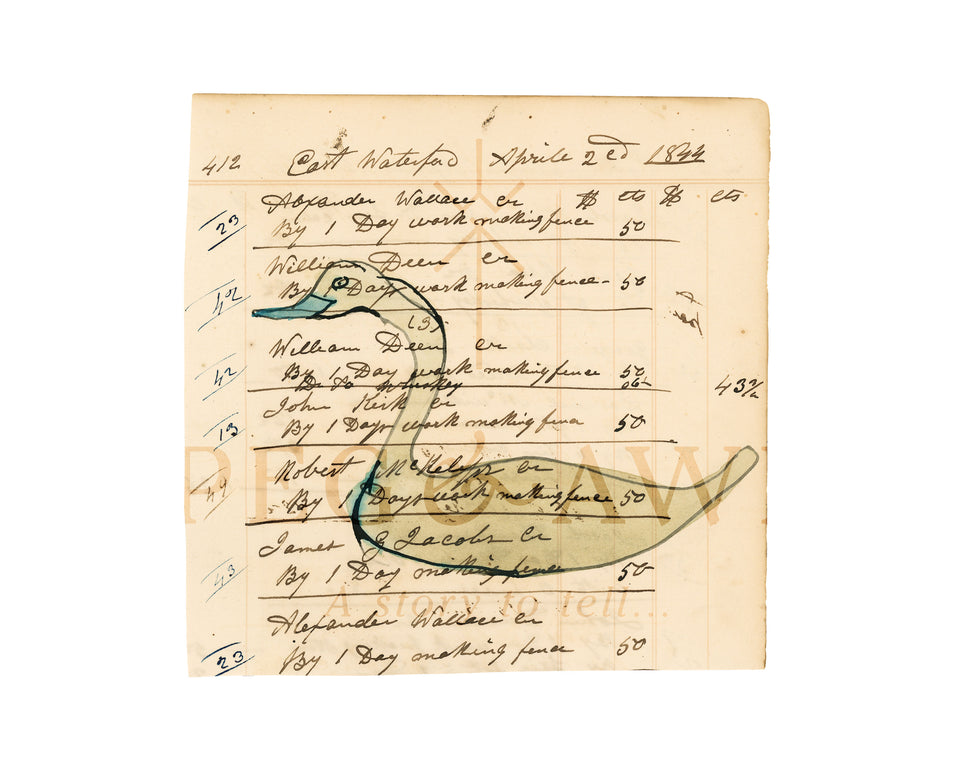 412 East Waterford Aprile 2cd 1844
Alexander Wallace cr $ cts $ cts
23 By 1 Day work making fence 50
William Deen cr
42 By 1 Days work making fence - 50
(3)
William Deen cr
42 By 1 Day work making fence 50
Do to Whiskey 06 43 3/4
John Kirk cr
13 By 1 Days work making fence 50
PEG & AWL
Robert cr
44 By 1 Days work making fence 50
James G Jacobs Cr
43 By 1 Day making fence 50
A story to tell...
Alexander Wallace cr
23 By 1 Day making fence 50